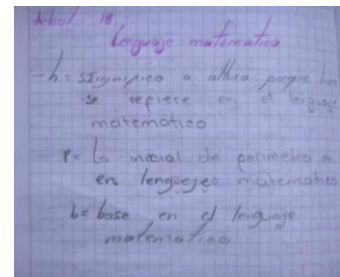 Abril 18
Lenguaje matematico
-h= significa a altura porque han
se refiere en el lenguaje
matematico
P= la inicial de perimetro a
en lenguajea matematico
b= base en el lenguaje
matematico